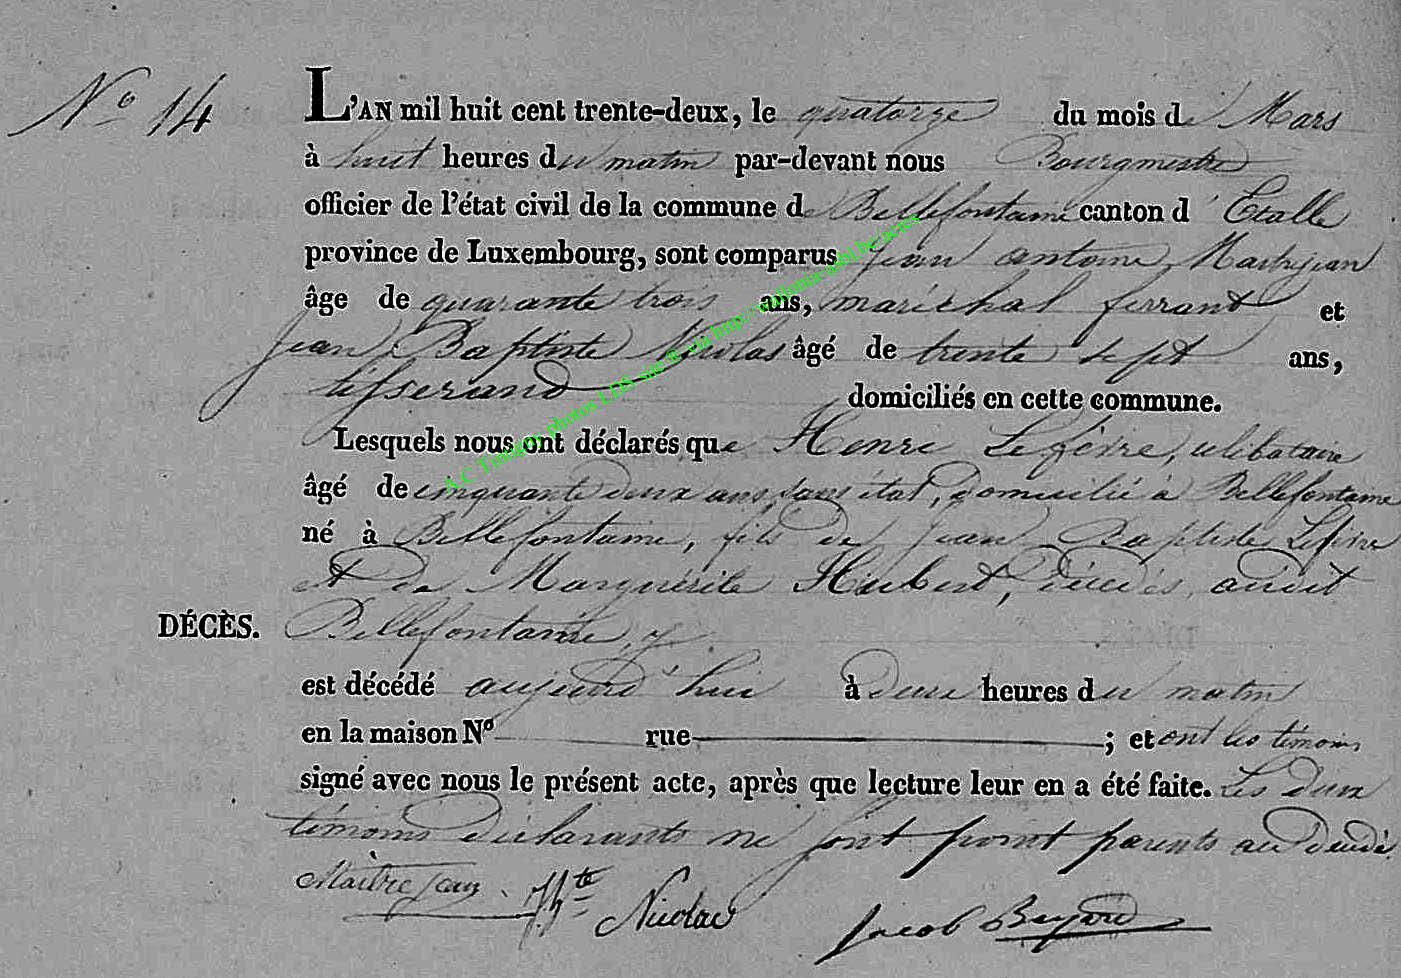 N° 14
L'AN mil huit cent trente-deux, le quatorze du mois de Mars
à huit heures du matin par-devant nous Bourgmestre
officier de l'état civil de la commune de Bellefontaine canton d'Etalle
province de Luxembourg, sont comparus Jean antoine
âge de quarante trois ans, maréchal ferrant et
Jean Baptiste Nicolas âgé de trente sept ans,
tisserand domiciliés en cette commune.
Lesquels nous ont déclarés que Henri Lefévre, celibataire
âgé de cinquante deux ans, sans état, domicilié à Bellefontaine
né à Bellefontaine, fils de Jean Baptiste Lefévre
et de Marguérite Hubert, décédés audit
DÉCÈS. Bellefontaine,
est décédé aujourd'hui à deux heures du matin
en la maison N° rue ; et ont les témoins
signé avec nous le présent acte, après que lecture leur en a été faite. Les deux
témoins déclarants ne sont point parents au décédé.
Maitrejean J.Bte Nicolas Jacob
A.C Tintigny photos LDS sur ® via http://wallonia-asbl.be/actes